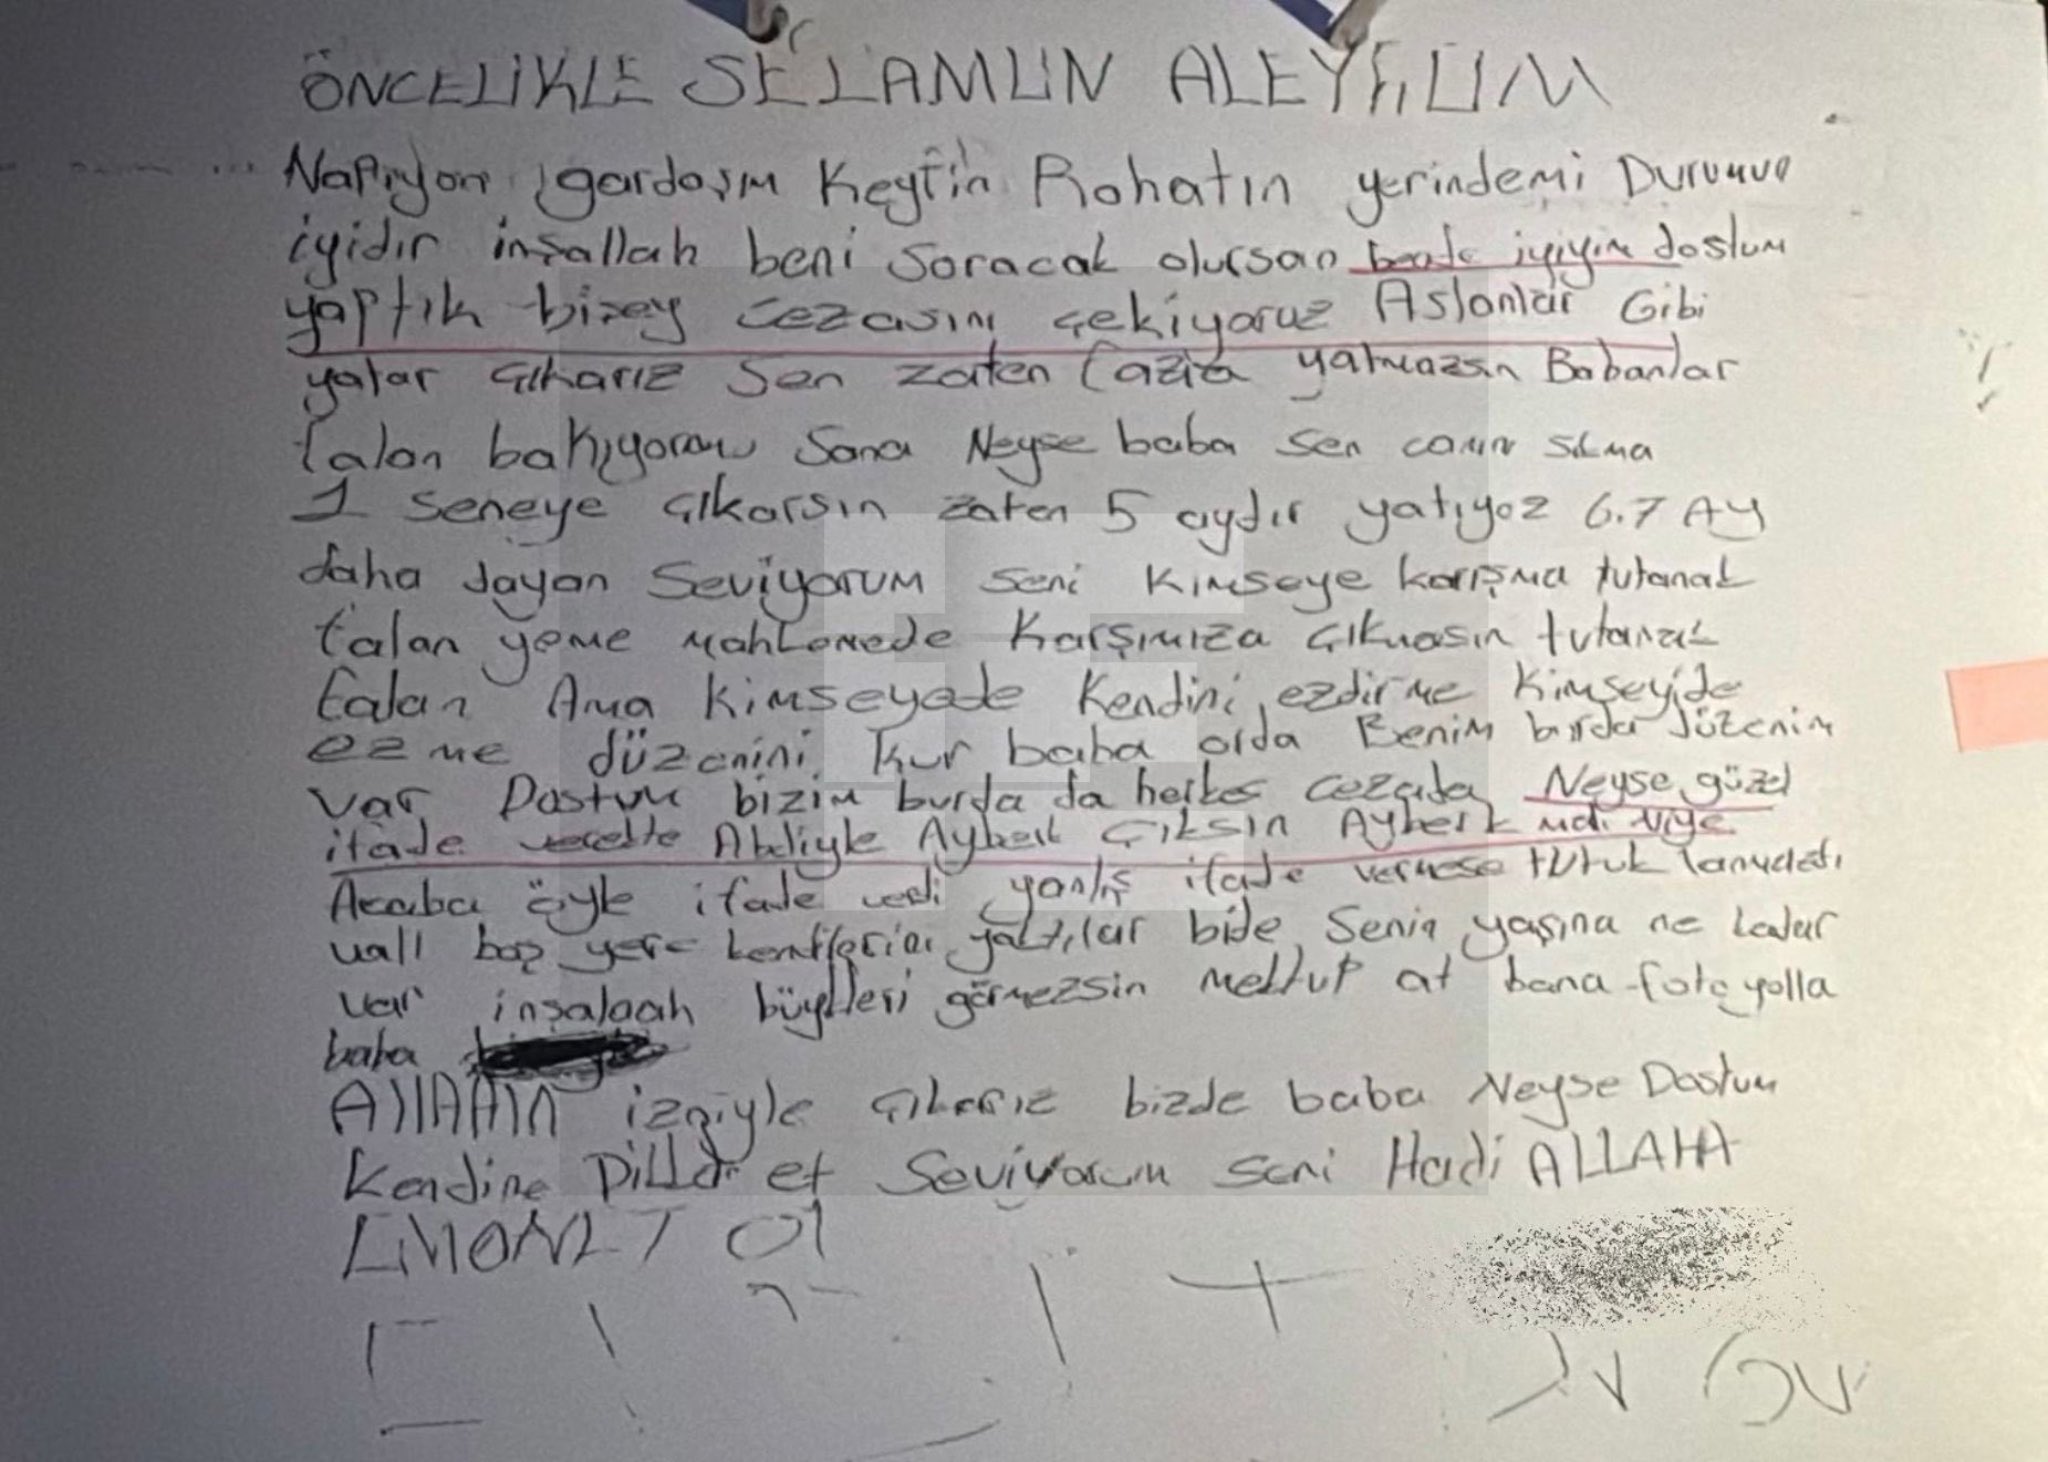 ÖNCELİKLE SELAMUN ALEYKUM
Napıyon gardaşım Keyfin Rohatın yerindemi Durumun
iyidir inşallah beni Soracak olursan bende iyiyim dostum
yaptık bişey cezasını çekiyoruz Aslanlar Gibi
yatar çıkarız Sen zaten fazla yatmazsın Babanlar
falan bakıyormu Sana Neyse baba sen canın sıkma
1 Seneye çıkarsın zaten 5 aydır yatıyoz 6.7 AY
daha dayan Seviyorum seni Kimseye karışma tutanak
falan yeme mahkemede Karşımıza çıkmasın tutanak
falan Ama Kimseyede Kendini ezdirme Kimseyide
ezme düzenini Kur baba orda Benim burda düzenim
var Dostum bizim burda da herkes cezada Neyse güzel
ifade verekte Abeliyle Ayberk çıksın Ayberk niye
Acaba öyle ifade verdi yanlış ifade vermese tutuklanmazdı
vall boş yere kendilerini yaktılar bide Senin yaşına ne kadar
var inşalaah büyükleri görmezsin mektup at bana foto yolla
baba
Allahın izniyle çıkarız bizde baba Neyse Dostum
Kendine Dikkat et Seviyorum seni Hadi ALLAHA
EMONET Ol